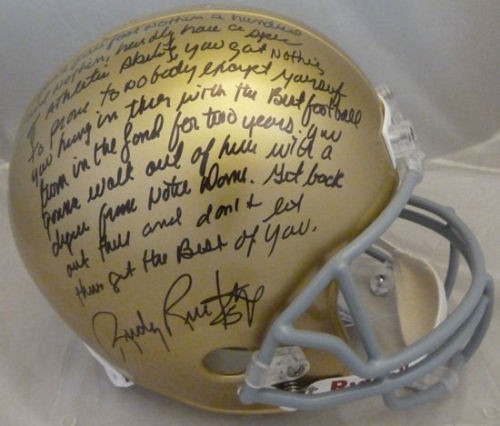 foot nothin a hundred
and nothin, hardly have a spec
of Athletic Ability. you got Nothin
to prove to Nobody except yourself.
you hung in ther with the Best football
team in the land for two years. you
gonna walk out of here with a
degree from Notre Dame. Get back
out there and don't let
them get the Best of you.
Rudy Ruettiger
R